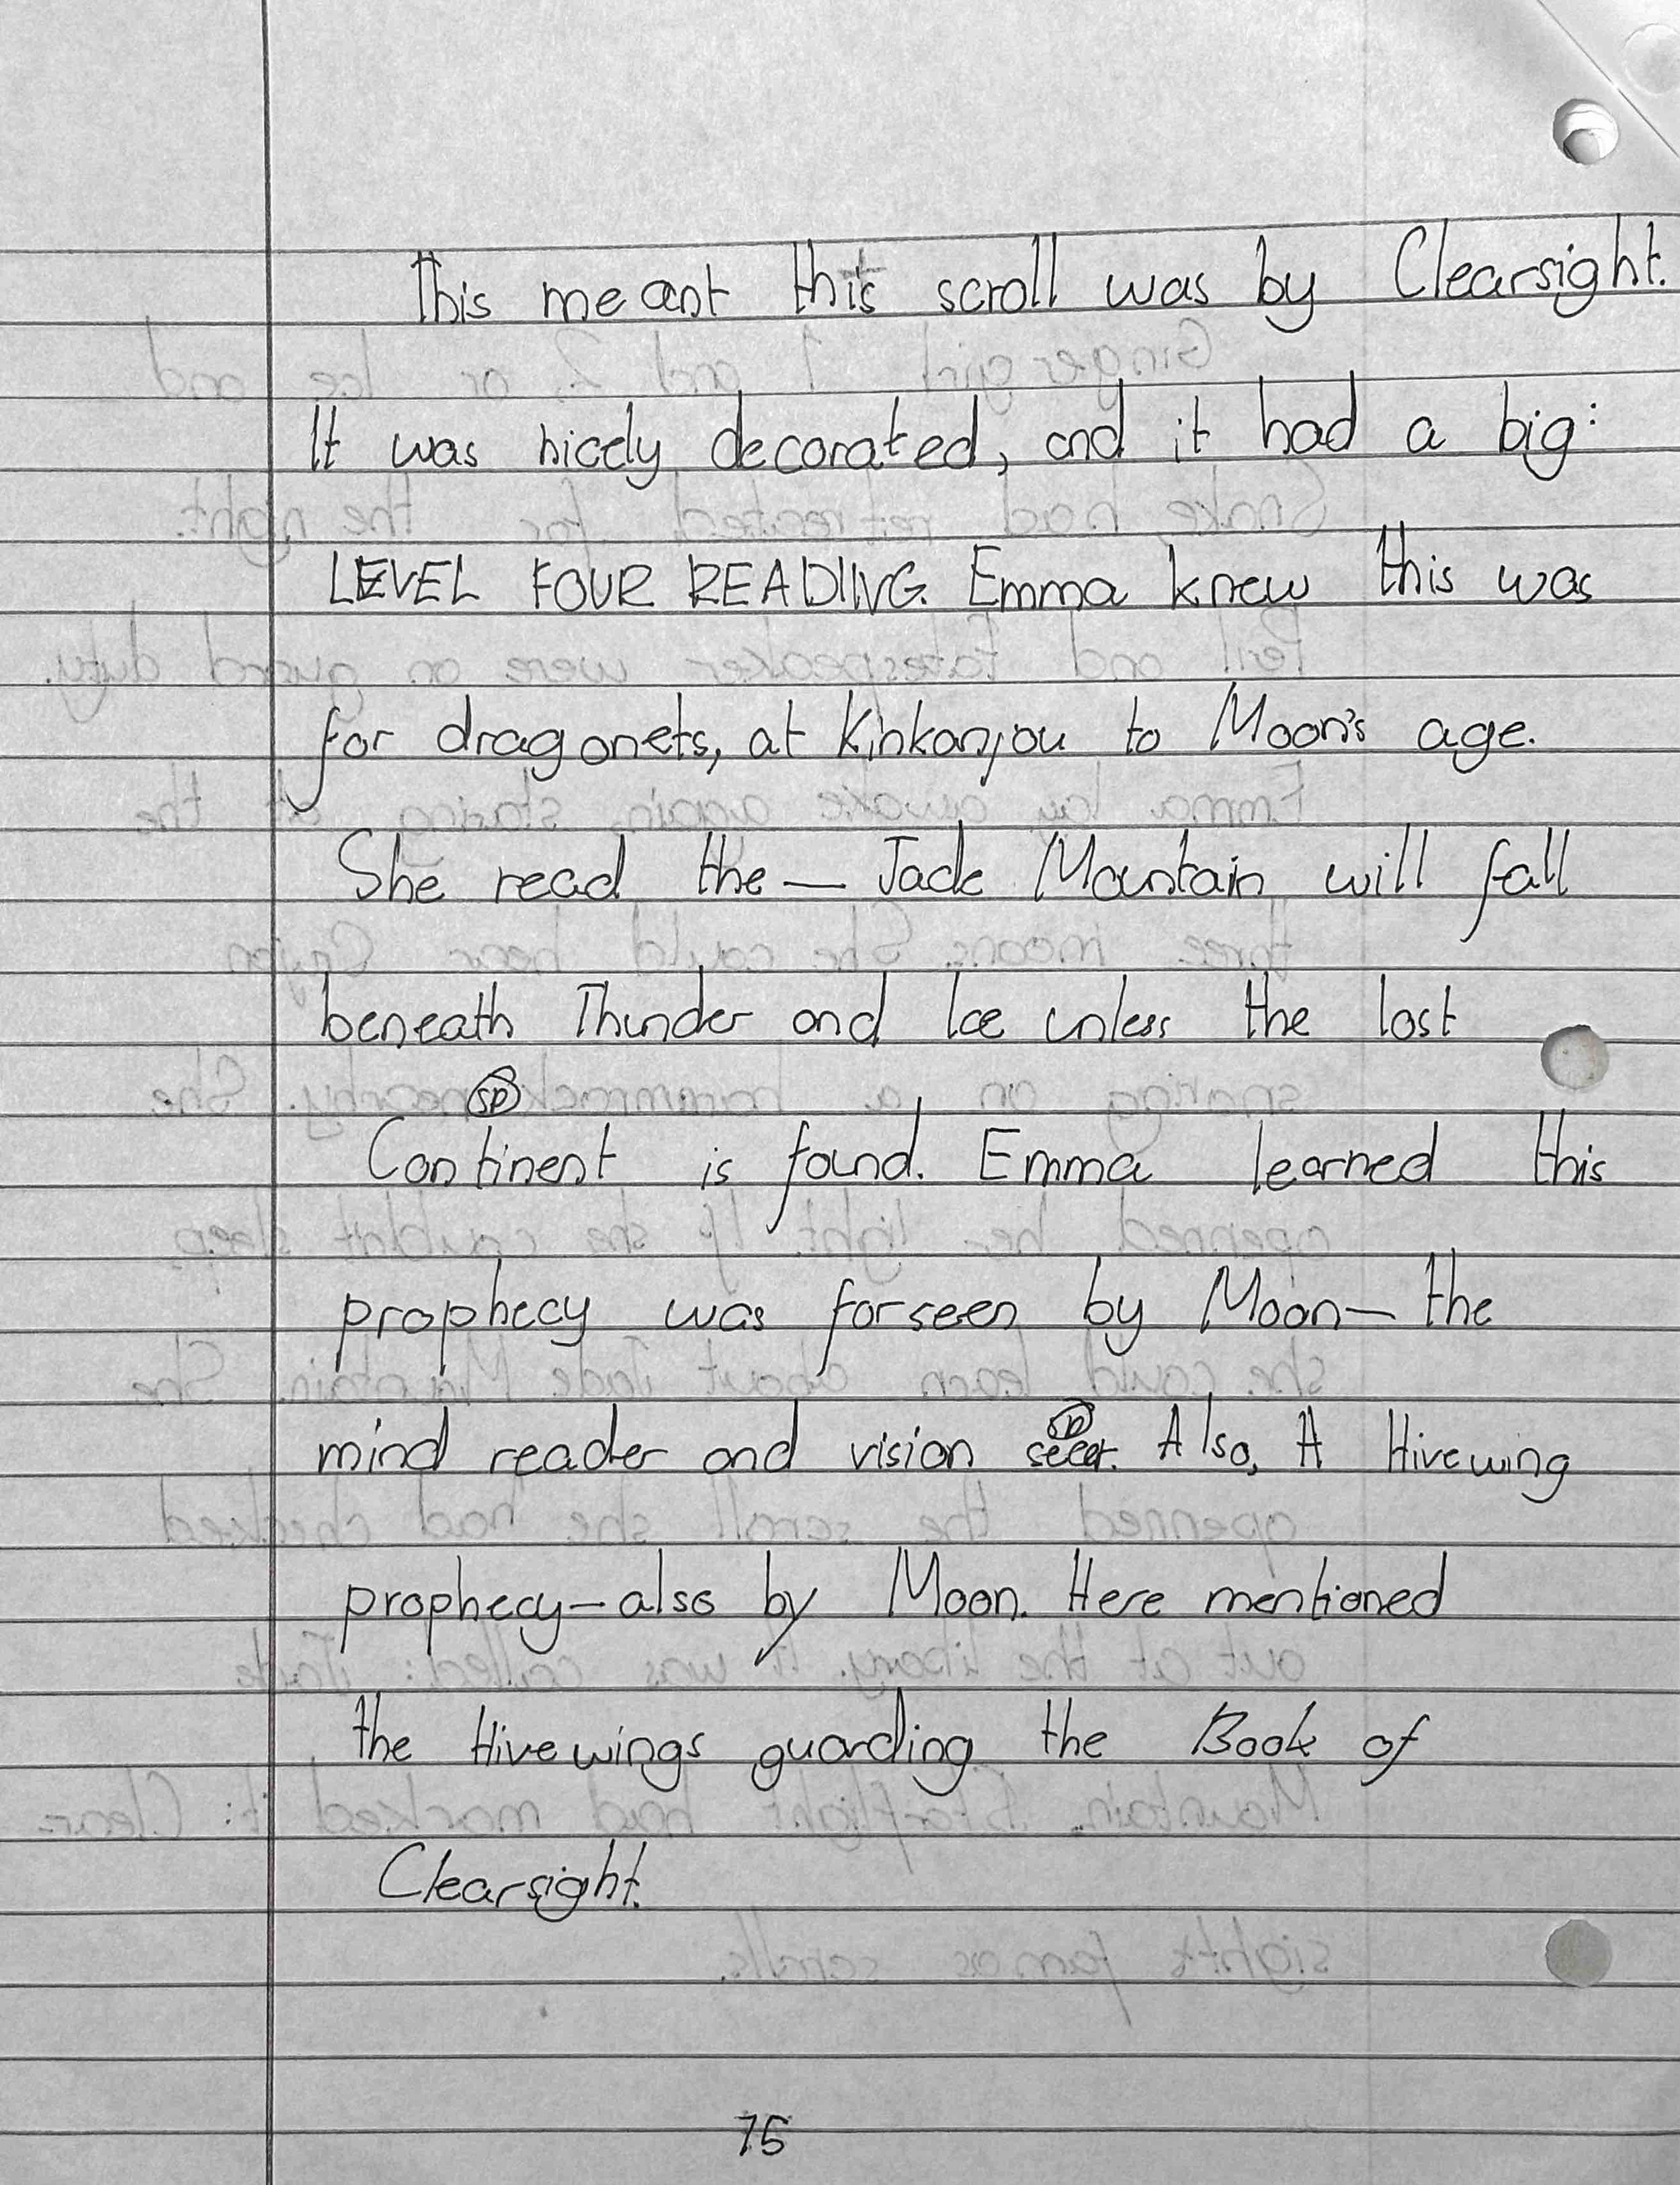 This meant this scroll was by Clearsight.
It was nicely decorated, and it had a big:
LEVEL FOUR READING. Emma knew this was
for dragonets, at Kinkanjou to Moon's age.
She read the — Jade Mountain will fall
beneath Thunder and Ice unless the lost
sp
Continent is found. Emma learned this
prophecy was forseen by Moon— the
sp
mind reader and vision seer. Also, A Hivewing
prophecy—also by Moon. Here mentioned
the Hivewings guarding the Book of
Clearsight.
75